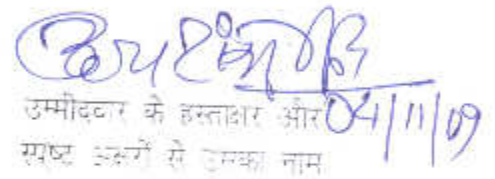 उम्मीदवार के हस्ताक्षर और 04/11/09
स्पष्ट अक्षरों से उसका नाम